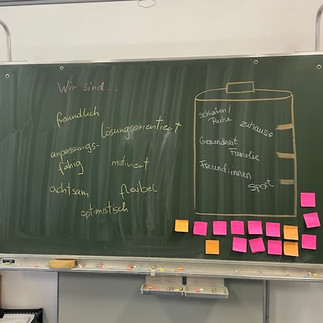 Wir sind...
freundlich
Lösungsorientiert
anpassungs-
fähig
motiviert
achtsam
flexibel
optimistisch
schlafen/
Ruhe
zuhause
Gesundheit
Familie
Freund:innen
Sport